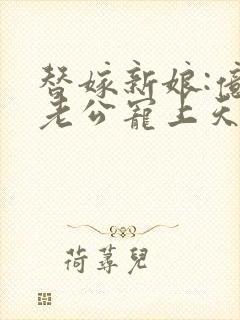 替嫁新娘:億
老公寵上天
荷蓴兒